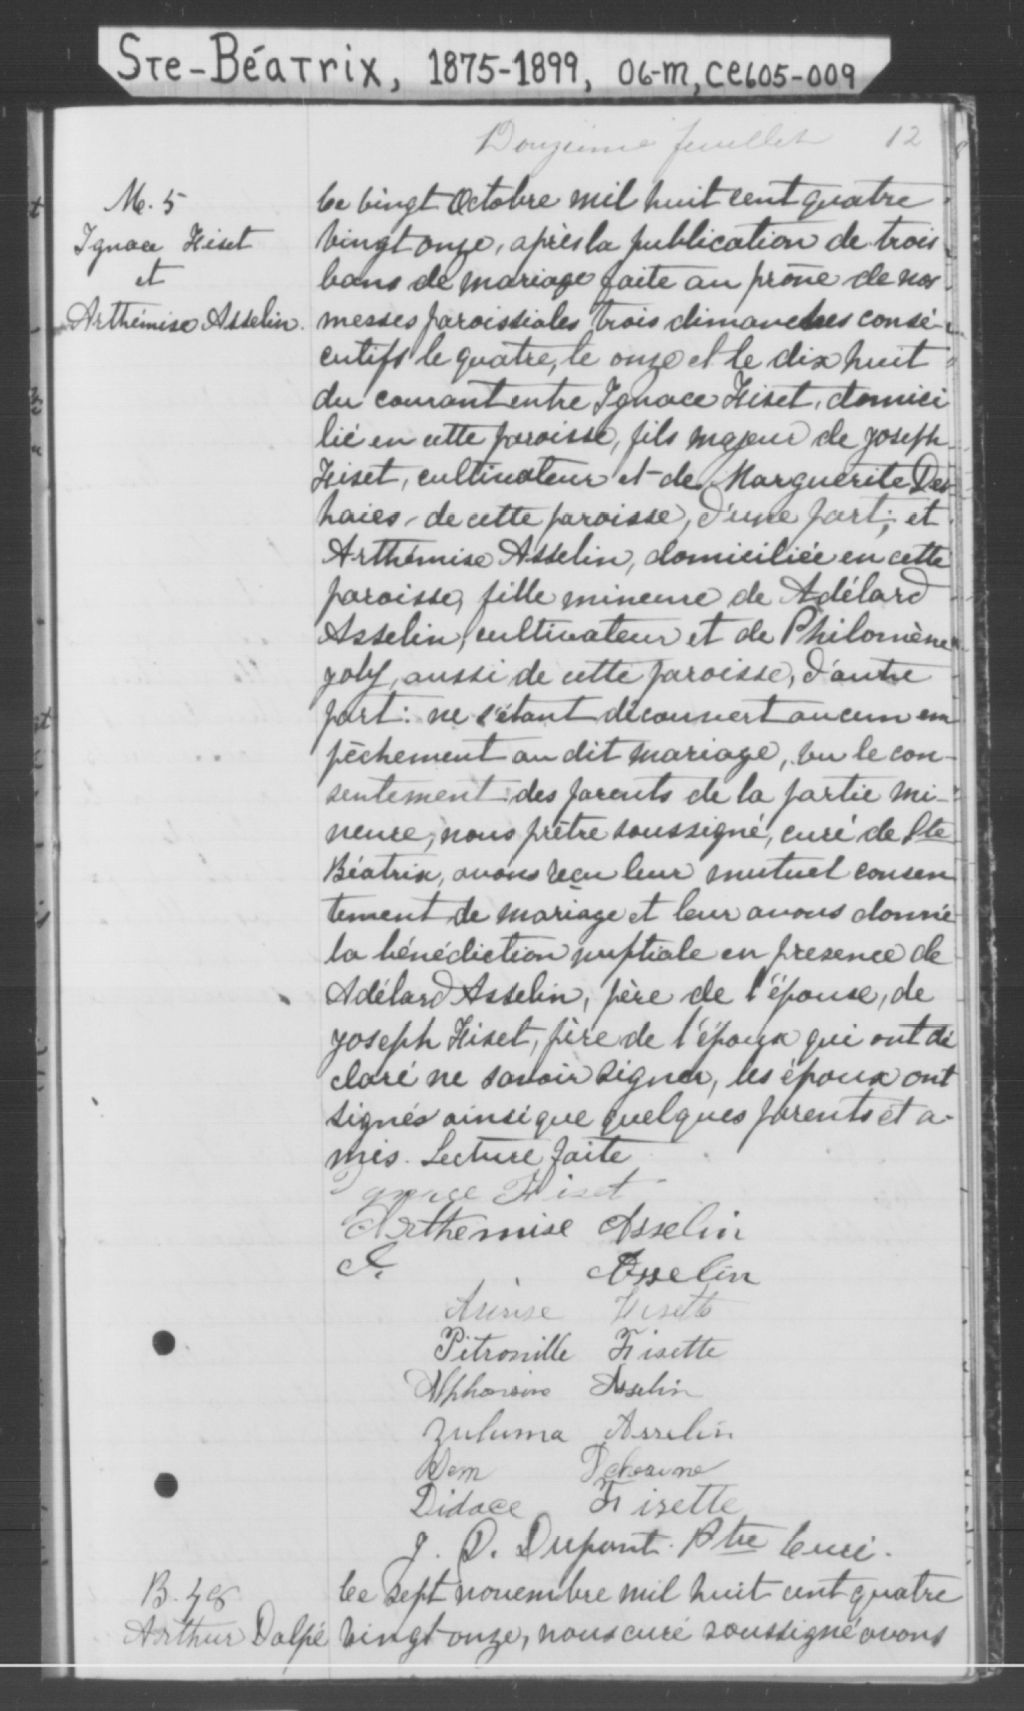 Ste-Béatrix, 1875-1899, 06-M, CE605-009
Douzième feuillet 12
M. 5
Ignace Fiset
et
Arthémise Asselin.
Ce vingt Octobre mil huit cent quatre
vingt onze, après la publication de trois
bans de mariage faite au prône de nos
messes paroissiales trois dimanches consé-
cutifs le quatre, le onze et le dix huit
du courant entre Ignace Fiset, domici
lié en cette paroisse, fils majeur de Joseph
Fiset, cultivateur et de Marguerite Des
haies, de cette paroisse, d'une part; et
Arthémise Asselin, domiciliée en cette
paroisse, fille mineure de Adélard
Asselin, cultivateur et de Philomène
Joly, aussi de cette paroisse, d'autre
part: ne s'étant découvert aucun em
pêchement au dit mariage, vu le con-
sentement des parents de la partie mi-
neure, nous prêtre soussigné, curé de Ste
Béatrix, avons reçu leur mutuel consen
tement de mariage et leur avons donné
la bénédiction nuptiale en presence de
Adélard Asselin, père de l'épouse, de
Joseph Fiset, père de l'époux qui ont dé
claré ne savoir signer, les époux ont
signés ainsi que quelques parents et a-
mis. Lecture faite
Ignace Fiset
Arthemise Asselin
A. Asselin
Fisette
Pétronille Fisette
Alphonsine Asselin
Zuluma Asselin
Dem
Didace Fisette
J. D. Dupont. Ptre Curé.
B. 48
Arthur Dalpé
Ce sept novembre mil huit cent quatre
vingt onze, nous curé soussigné avons